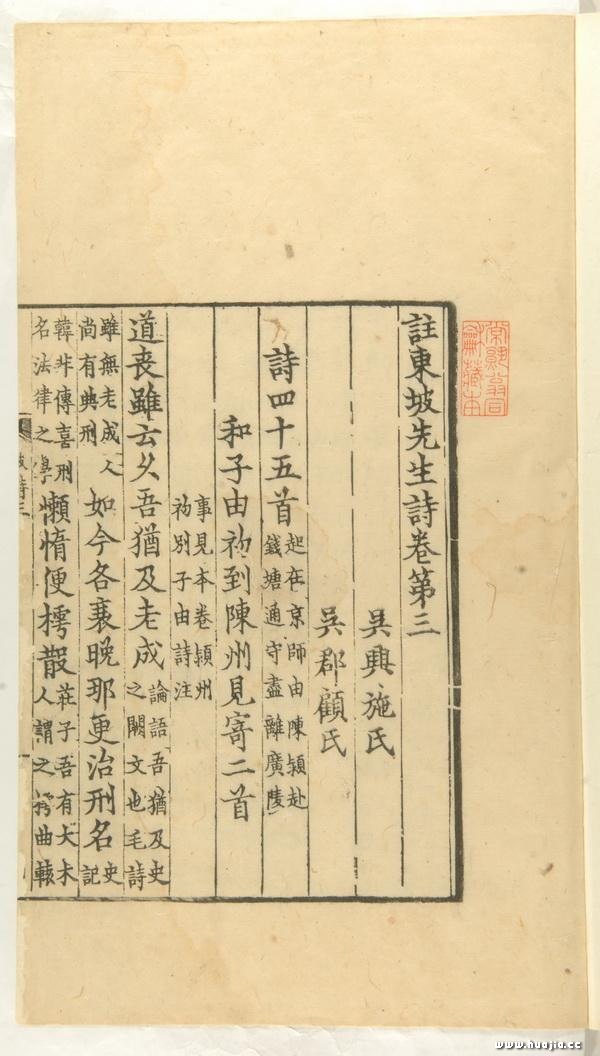 常熟翁同
龢藏本
註東坡先生詩卷第三
吳興施氏
吳郡顧氏
詩四十五首起在京師由陳潁赴錢塘通守盡離廣陵
和子由初到陳州見寄二首
事見本卷潁州初別子由詩注
道喪雖云乆吾猶及老成論語吾猶及史之闕文也毛詩
雖無老成人尚有典刑如今各衰晚那更治刑名史記
韓非傳喜刑名法律之學懶惰便樗散莊子吾有大木人謂之樗曲轅
坡詩三
www.huajia.cc